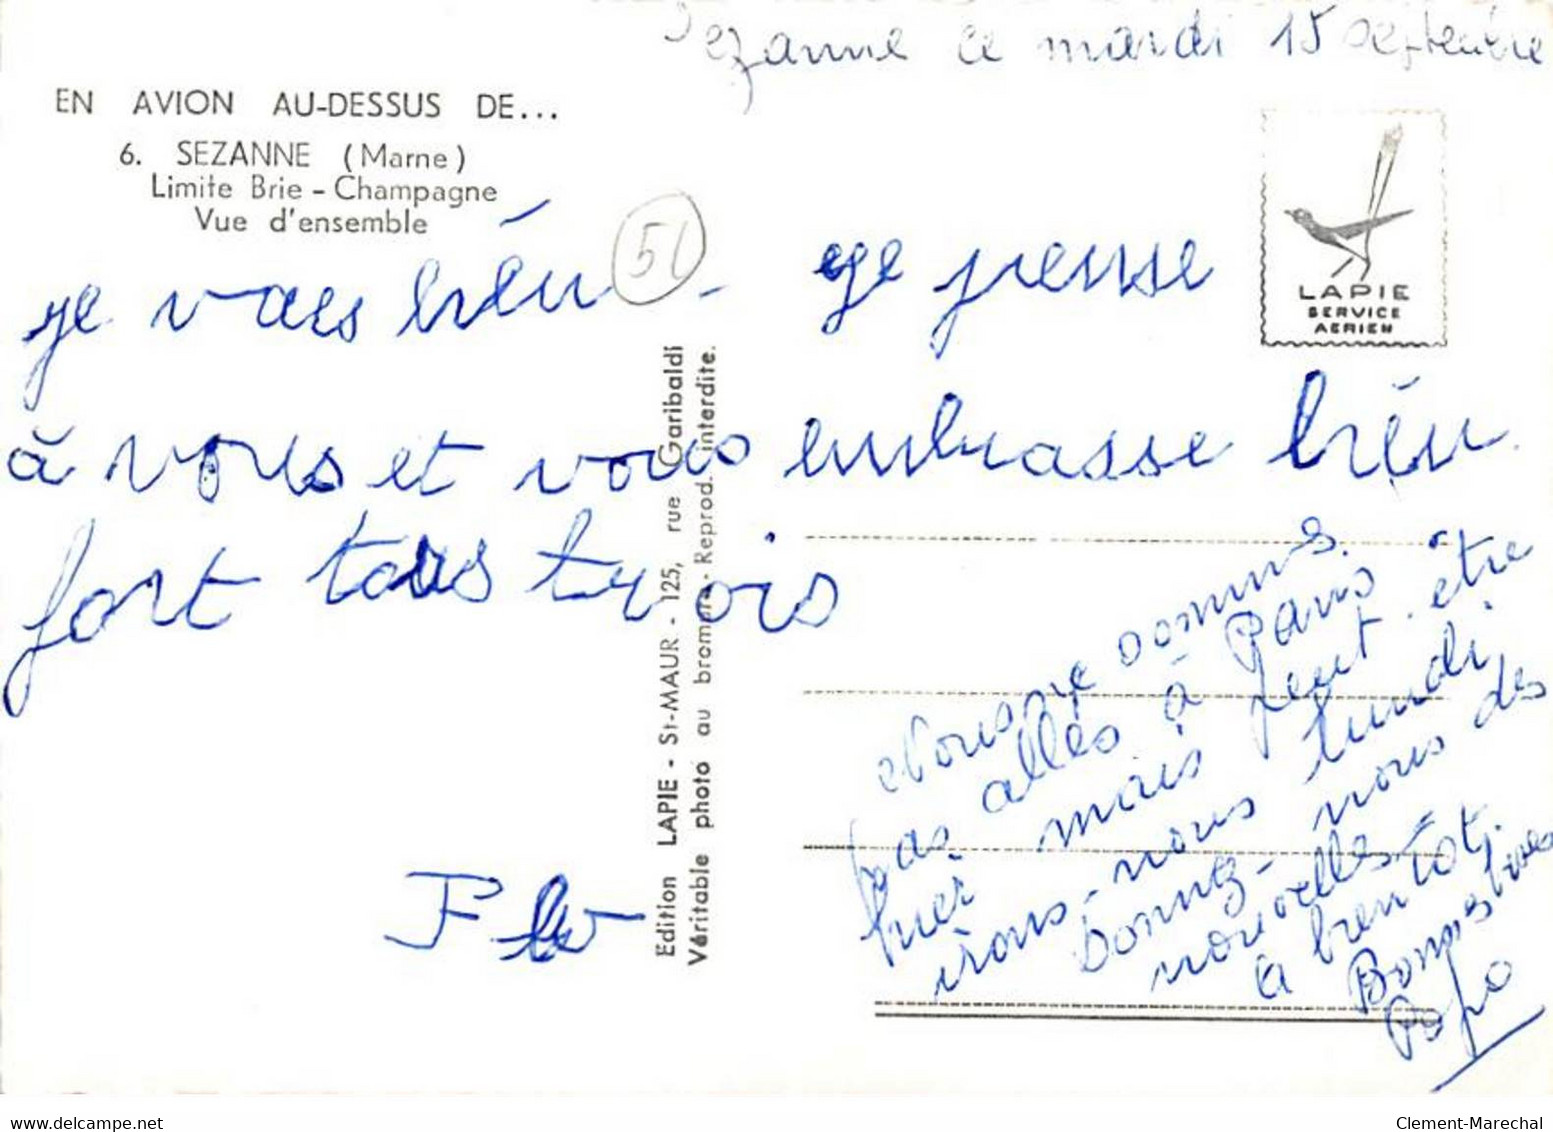 Sezanne ce mardi 15 septembre
EN AVION AU-DESSUS DE...
6. SEZANNE (Marne)
Limite Brie - Champagne
Vue d'ensemble
51
LAPIE
SERVICE
AERIEN
je vais bien - je pense
à vous et vous embrasse bien
fort tous trois
Edition LAPIE - St-MAUR - 125, rue Garibaldi
Véritable photo au bromure - Reprod. interdite.
Nous ne sommes
pas allés à Paris
hier mais peut-être
irons-nous lundi
Donnez-nous des
nouvelles
a bientôt.
Bonnes bises
Clement-Marechal